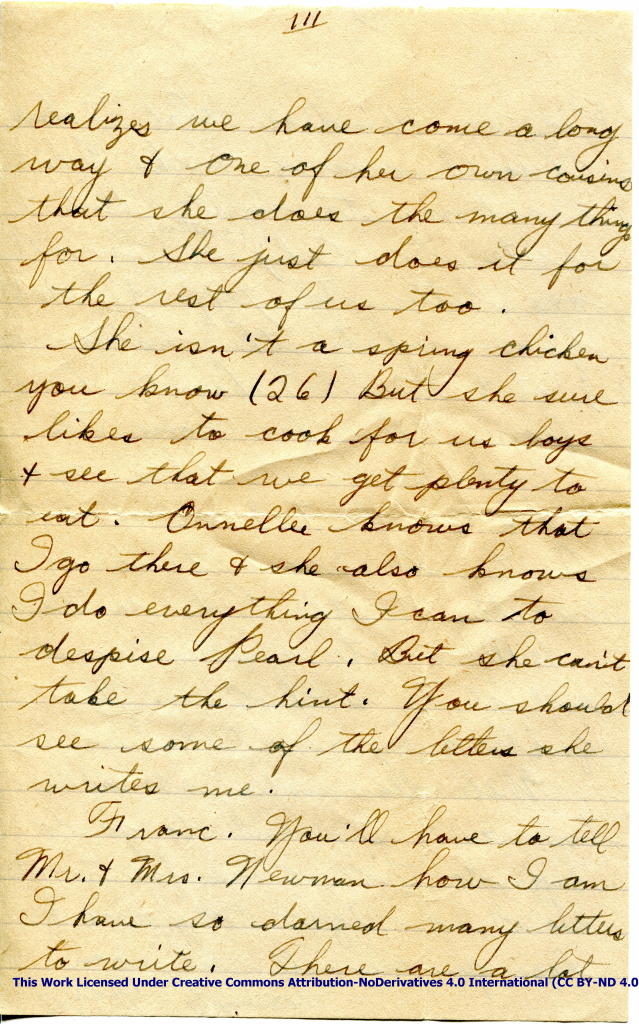 III
realizes we have come a long
way & one of her own cousins
that she does the many things
for. She just does it for
the rest of us too.
She isn't a spring chicken
you know (26) But she sure
likes to cook for us boys
& see that we get plenty to
eat. Onnellee knows that
I go there & she also knows
I do everything I can to
despise Pearl. But she can't
take the hint. You should
see some of the letters she
writes me.
Franc. You'll have to tell
Mr. & Mrs. Newman how I am
I have so darned many letters
to write. There are a lot
This Work Licensed Under Creative Commons Attribution-NoDerivatives 4.0 International (CC BY-ND 4.0